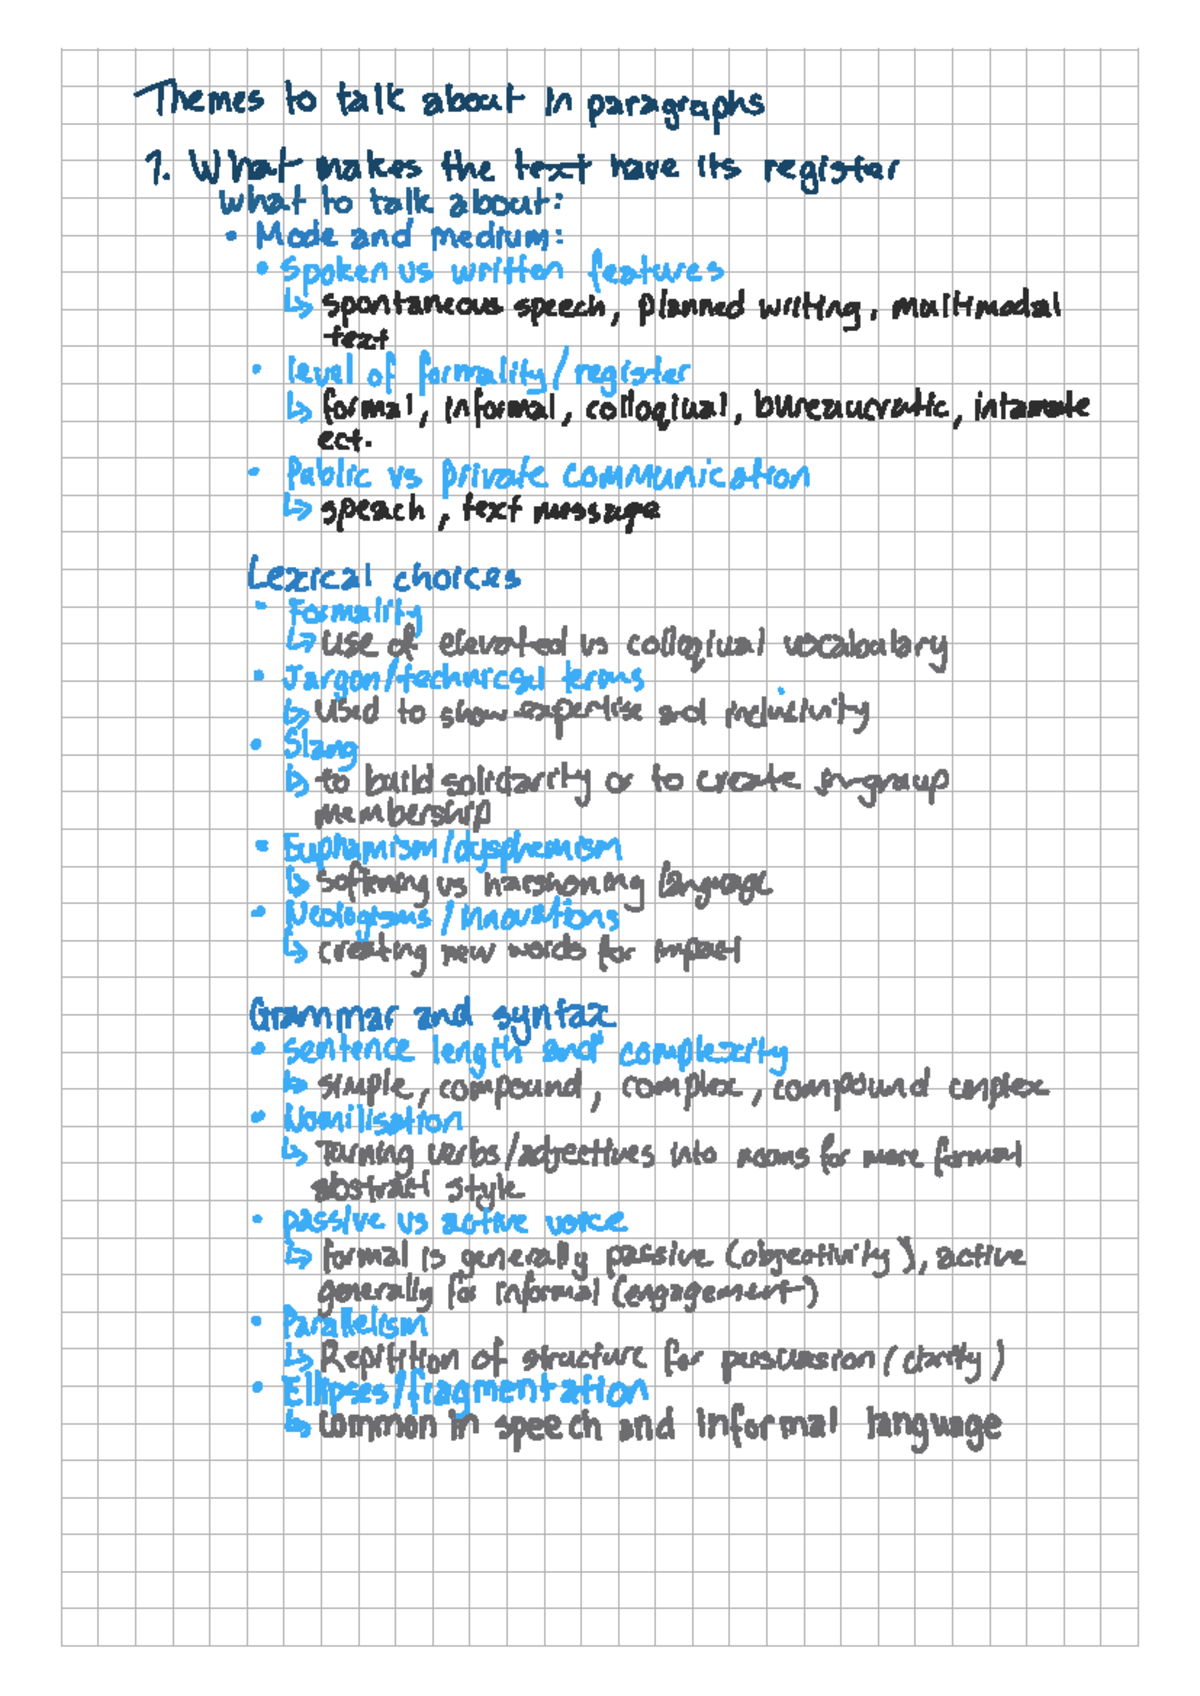 Themes to talk about in paragraphs
1. What makes the text have its register
What to talk about:
• Mode and medium:
• Spoken vs written features
↳ spontaneous speech, planned writing, multimodal
text
• level of formality/register
↳ formal, informal, colloqiual, bureaucratic, intamate
ect.
• Public vs private communication
↳ speach, text message
Lexical choices
• Formality
↳ use of elevated vs colloqiual vocabulary
• Jargon/technical terms
↳ Used to show expertise and inclusivity
• Slang
↳ to build solidarity or to create in-group
membership
• Euphamism/dysphemism
↳ softening vs harshoning language
• Neologisms/innovations
↳ creating new words for impact
Grammar and syntax
• sentence length and complexity
↳ simple, compound, complex, compound complex
• Nomilisation
↳ Turning verbs/adjectives into nouns for more formal
abstract style
• passive vs active voice
↳ formal is generally passive (objectivity), active
generally for informal (engagement)
• Parallelism
↳ Repitition of structure for persuasion (clarity)
• Ellipses/fragmentation
↳ common in speech and informal language